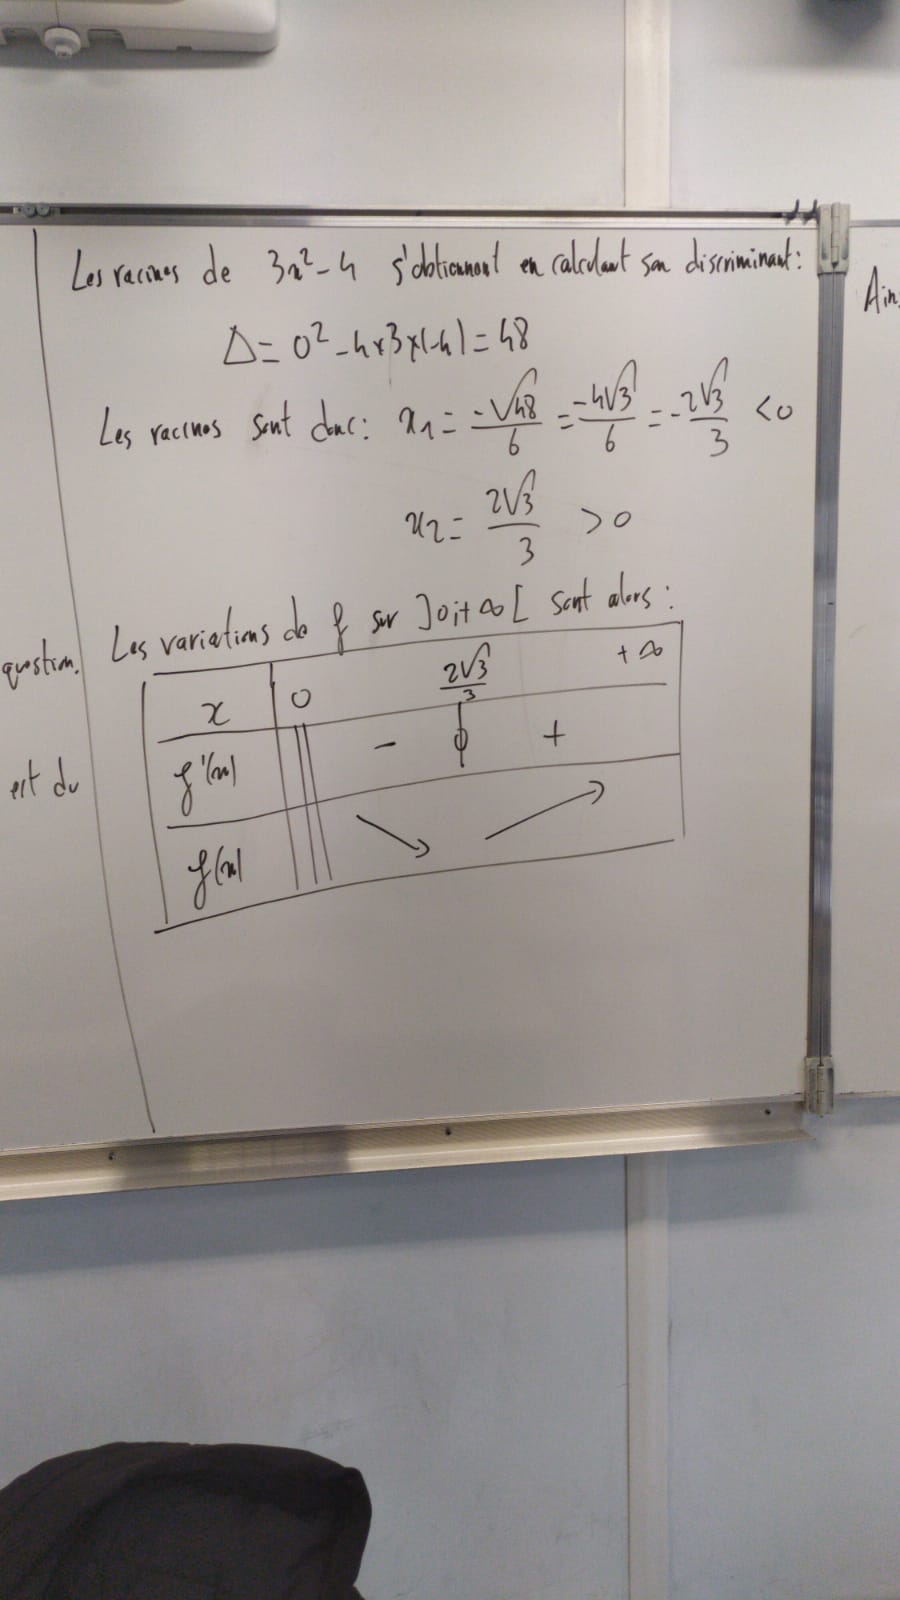 Les racines de 3x² - 4 s'obtiennent en calculant son discriminant :
Δ = 0² - 4 × 3 × (-4) = 48
Les racines sont donc : x₁ = -√48/6 = -4√3/6 = -2√3/3 < 0
x₂ = 2√3/3 > 0
Les variations de f sur ]0;+∞[ sont alors :
x 0 2√3/3 +∞
f'(x) - 0 +
f(x) ↘ ↗
question.
est du